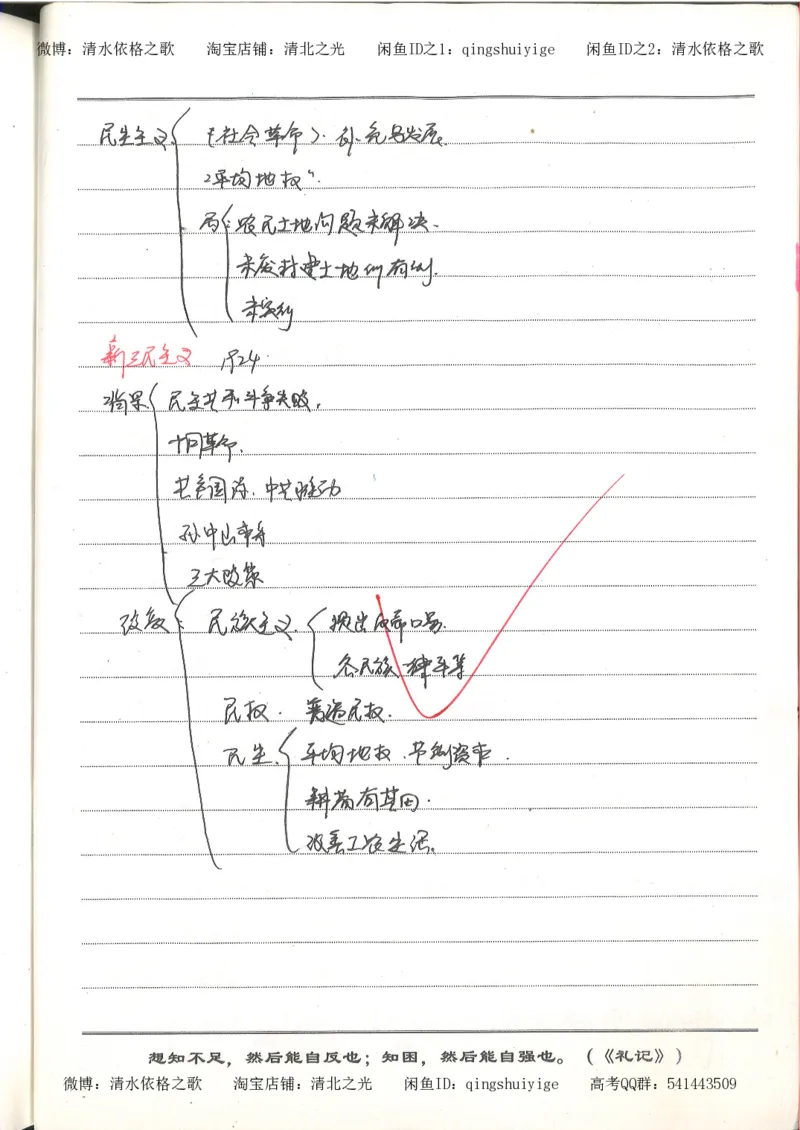 微博：清水依格之歌 淘宝店铺：清北之光 闲鱼ID之1：qingshuiyige 闲鱼ID之2：清水依格之歌
民生主义 (社会革命). 补充与发展.
"平均地权".
局: 农民土地问题未解决.
未废封建土地所有制.
未实行
新三民主义 P24.
背景 民主共和斗争失败.
十月革命.
共产国际. 中共推动
孙中山本身
三大政策
改变: 民族主义. 提出反帝口号.
各民族一律平等
民权. 普遍民权.
民生. 平均地权. 节制资本.
耕者有其田.
改善工农生活.
想知不足，然后能自反也；知困，然后能自强也。（《礼记》）
微博：清水依格之歌 淘宝店铺：清北之光 闲鱼ID：qingshuiyige 高考QQ群：541443509